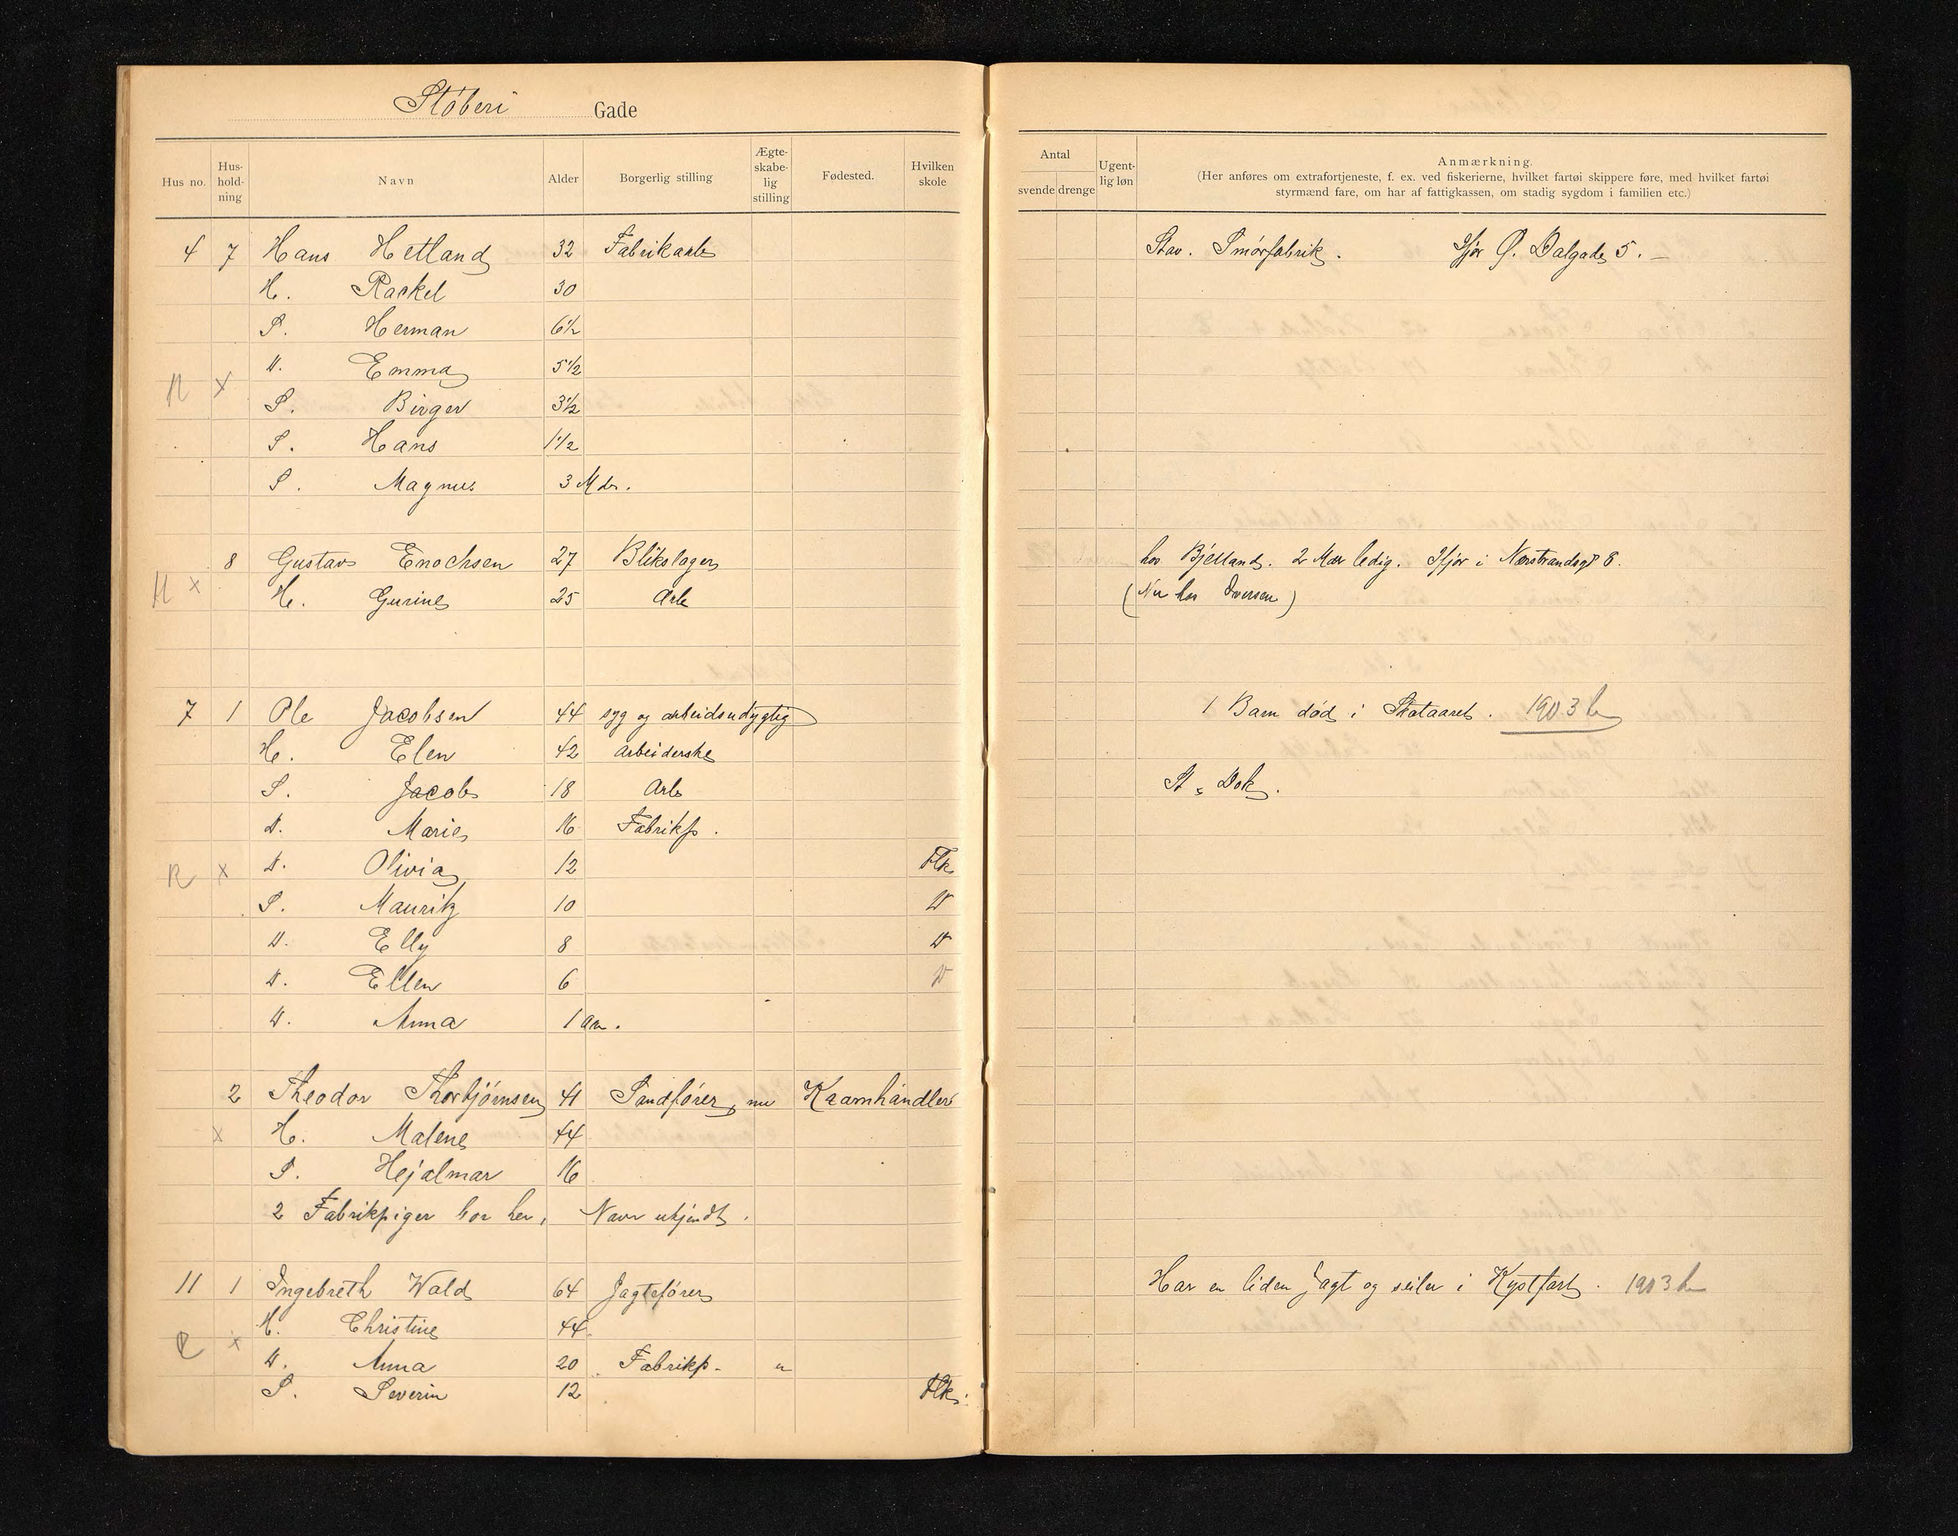 Støberi Gade
Hus no. Hus-hold-ning Navn Alder Borgerlig stilling Ægte-skabe-lig stilling Fødested. Hvilken skole
Antal svende drenge Ugent-lig løn Anmærkning.
(Her anføres om extrafortjeneste, f. ex. ved fiskerierne, hvilket fartøi skippere føre, med hvilket fartøi
styrmænd fare, om har af fattigkassen, om stadig sygdom i familien etc.)
4 7 Hans Hetland 32 Fabrikarb Stav. Smørfabrik. Ifjor Ø. Dalgade 5. —
H. Rakel 30
S. Herman 6½
D. Emma 5½
x
S. Birger 3½
S. Hans 1½
S. Magnus 3 Mdr.
8 Gustav Enochsen 27 Blikslager hos Bjelland. 2 Mdr ledig. Ifjor i Nærstrandsgt 8.
x H. Gurine 25 Arb (Nu hos Iversen)
7 1 Ole Jacobsen 44 syg og arbeidsudygtig 1 Barn død i Skataaret. 1903 h
H. Elen 42 Arbeiderske
S. Jacob 18 Arb St. Dok.
D. Marie 16 Fabrikp.
R x D. Olivia 12 Flk
S. Mauritz 10 D
D. Elly 8 D
D. Ellen 6 D
D. Anna 1 aar.
2 Theodor Thorbjørnsen 41 Sandfører, nu Kramhandler
x H. Malene 44
S. Hejalmar 16
2 Fabrikpiger bor her, Navn ukjendt.
11 1 Ingebreth Wald 64 Jagtefører Har en liden Jagt og seiler i Kystfart. 1903 h
H. Christine 44.
R x
D. Anna 20 Fabrikp. u
S. Severin 12 Flk.